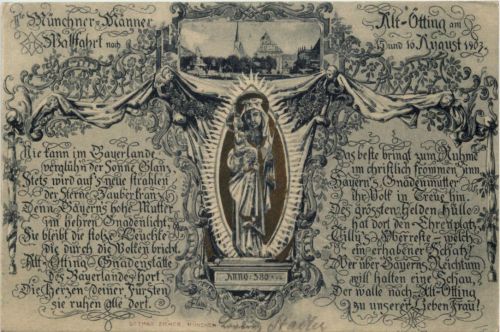 Münchner-Männer
Wallfahrt nach
Alt-Ötting am
15 und 16. August 1903.
Nie kann im Bayerlande
verglühn der Sonne Glanz
Stets wird auf's neue strahlen
der Sterne Zauberkranz
Denn Bayerns hohe Mutter
im hehren Gnadenlicht,
Sie bleibt die stolze Leuchte
die durch die Wolken bricht.
Alt-Ötting Gnadenstätte
des Bayerlandes Hort,
Die Herzen deiner Fürsten
sie ruhen alle dort.
Das beste bringt zum Ruhme
im christlich frommen Sinn
Bayern's Gnadenmutter
ihr Volk in Treue hin.
Des grössten Helden Hülle
hat dort den Ehrenplatz,
Tilly's Überreste - welch
ein erhabener Schatz!
Wer über Bayerns Reichtum
will halten eine Schau,
Der walle nach Alt-Ötting
zu unserer Lieben Frau!
ANNO 580
OTTMAR ZIEHER, MÜNCHEN